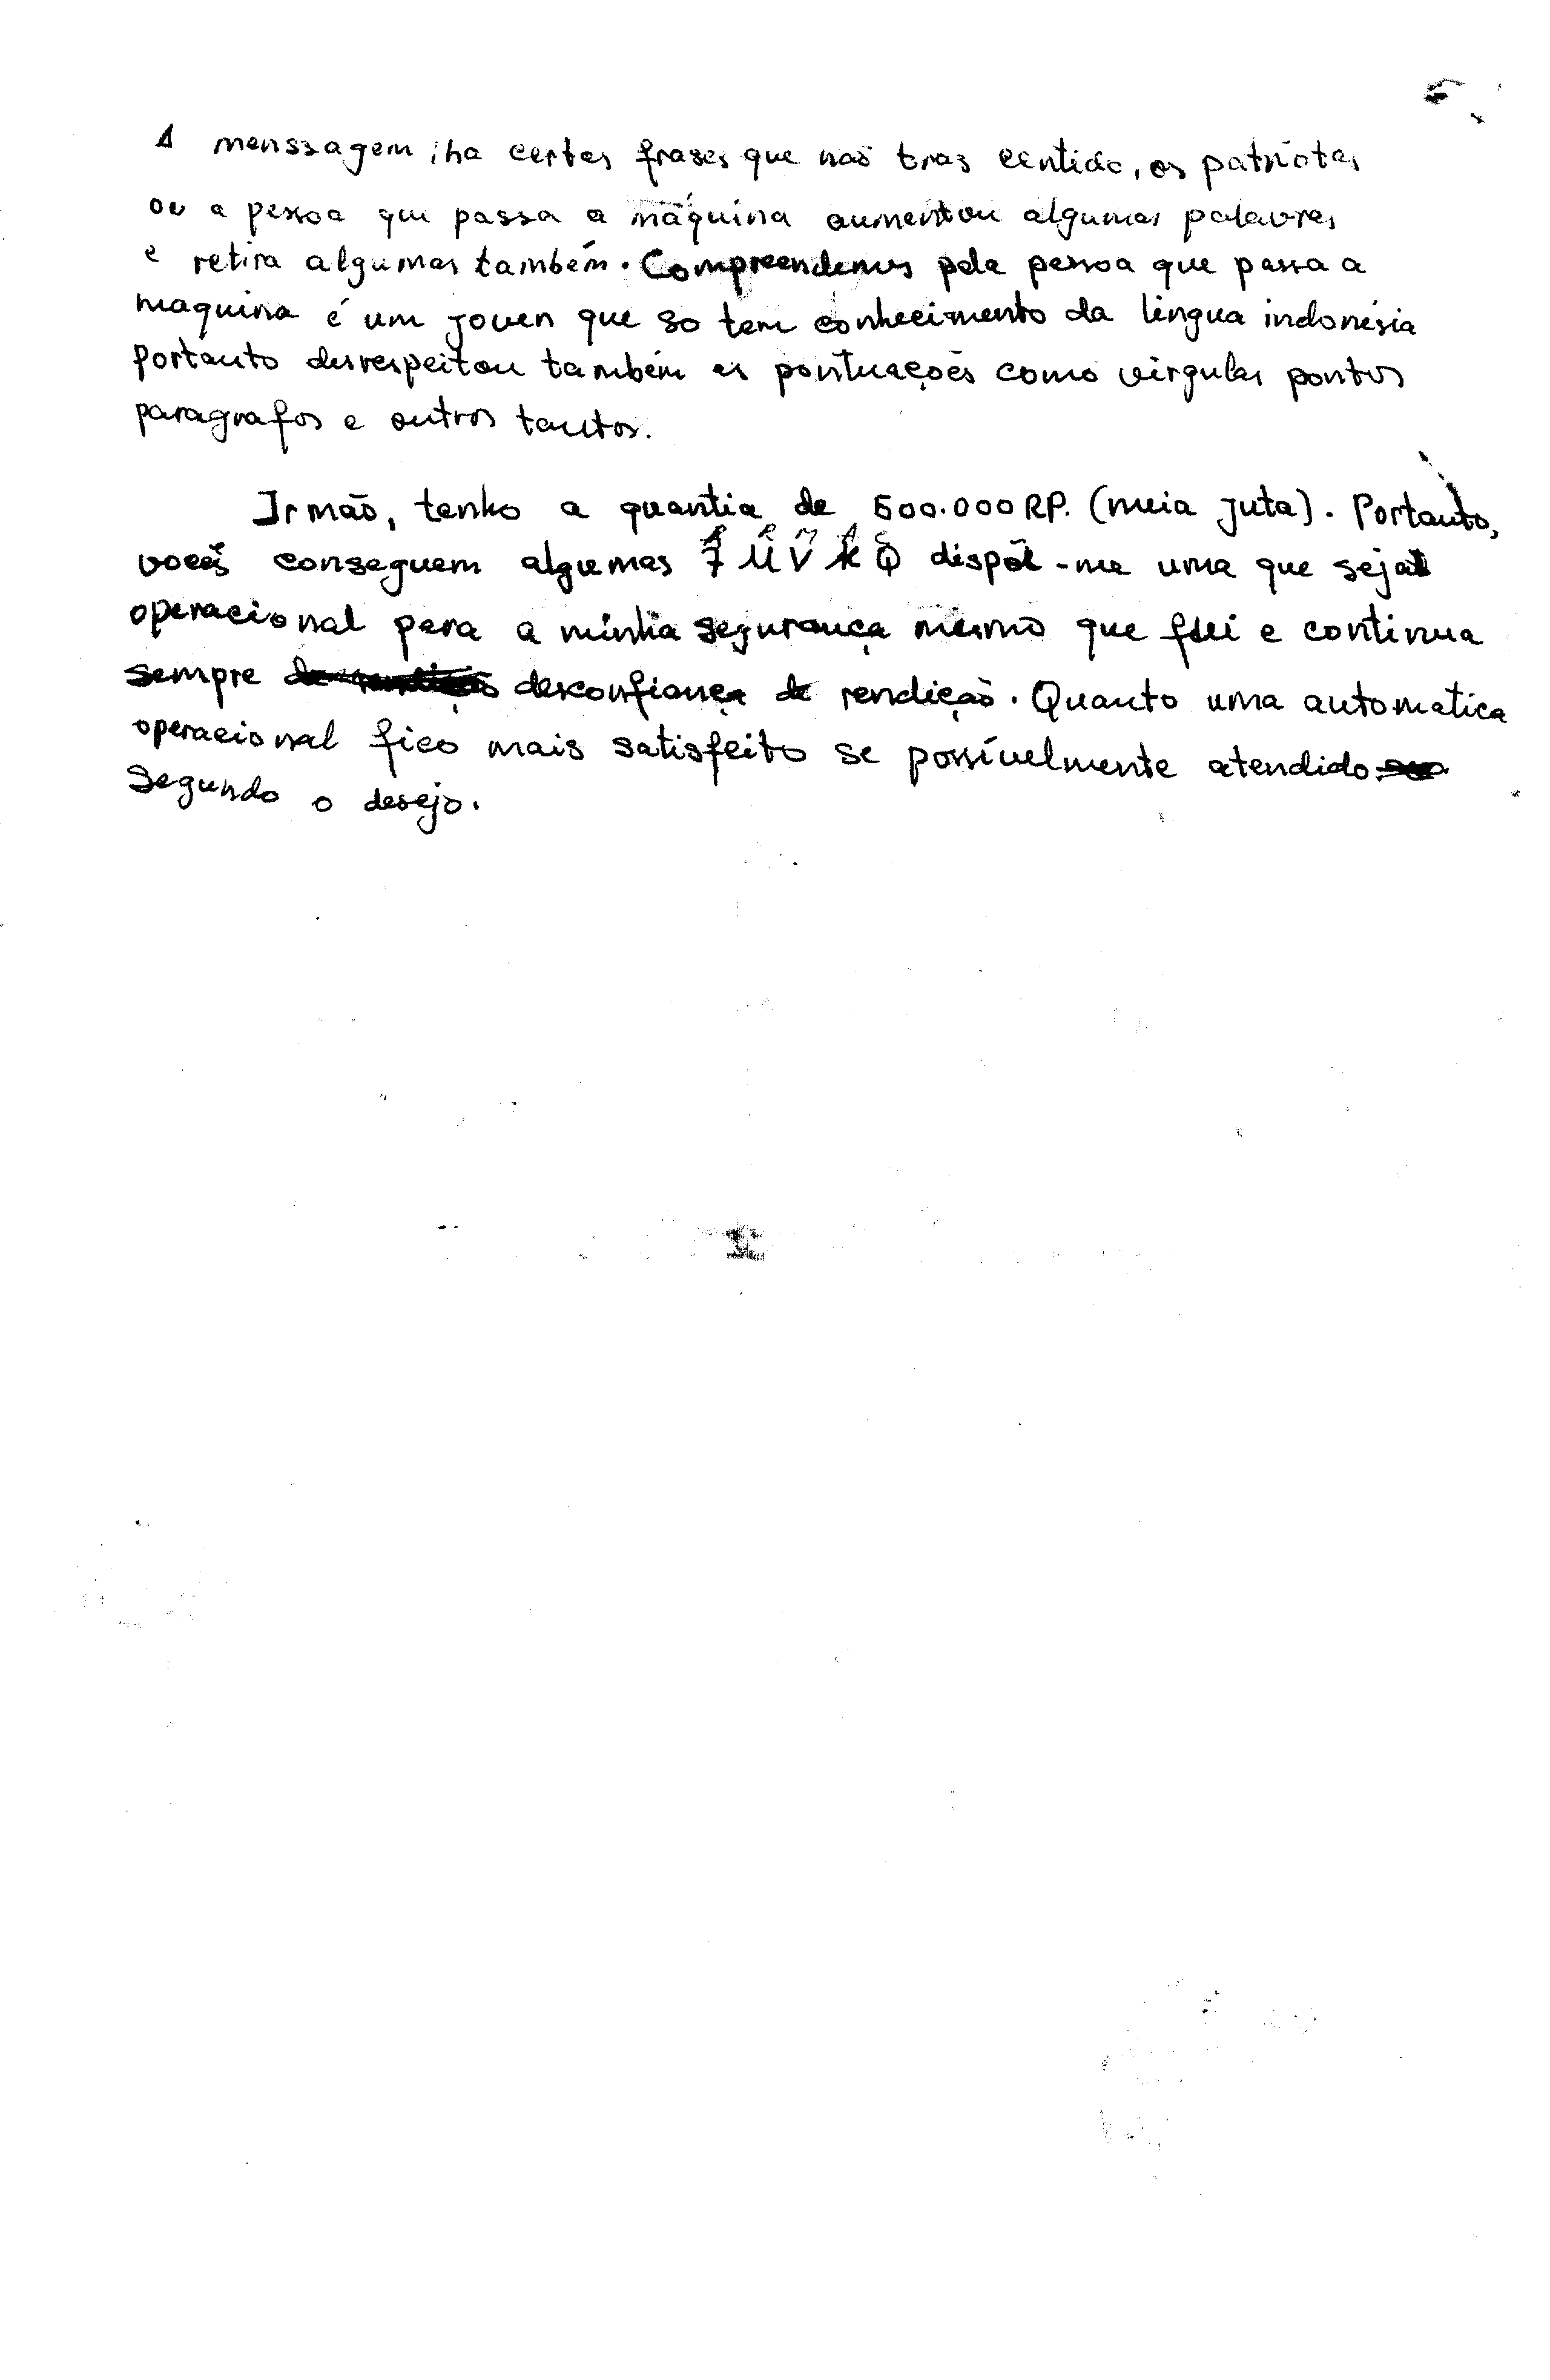 A menssagem, ha certas frases que naõ tras centido, os patriotas
ou a pessoa que passa a máquina aumentou algumas palavras
e retira algumas também. Compreendemos pela pessoa que passa a
maquina é um joven que so tem conhecimento da lingua indonésia
portanto desrespeitou também as pontuações como virgulas pontos
paragrafos e outros tantos.
Irmaõ, tenho a quantia de 500.000 RP. (meia juta). Portanto,
vocês conseguem algumas dispõi-me uma que seja
operacional para a minha segurança mesmo que fui e continua
sempre desconfiança de rendiçaõ. Quanto uma automatica
operacional fico mais satisfeito se possívelmente atendido
segundo o desejo.